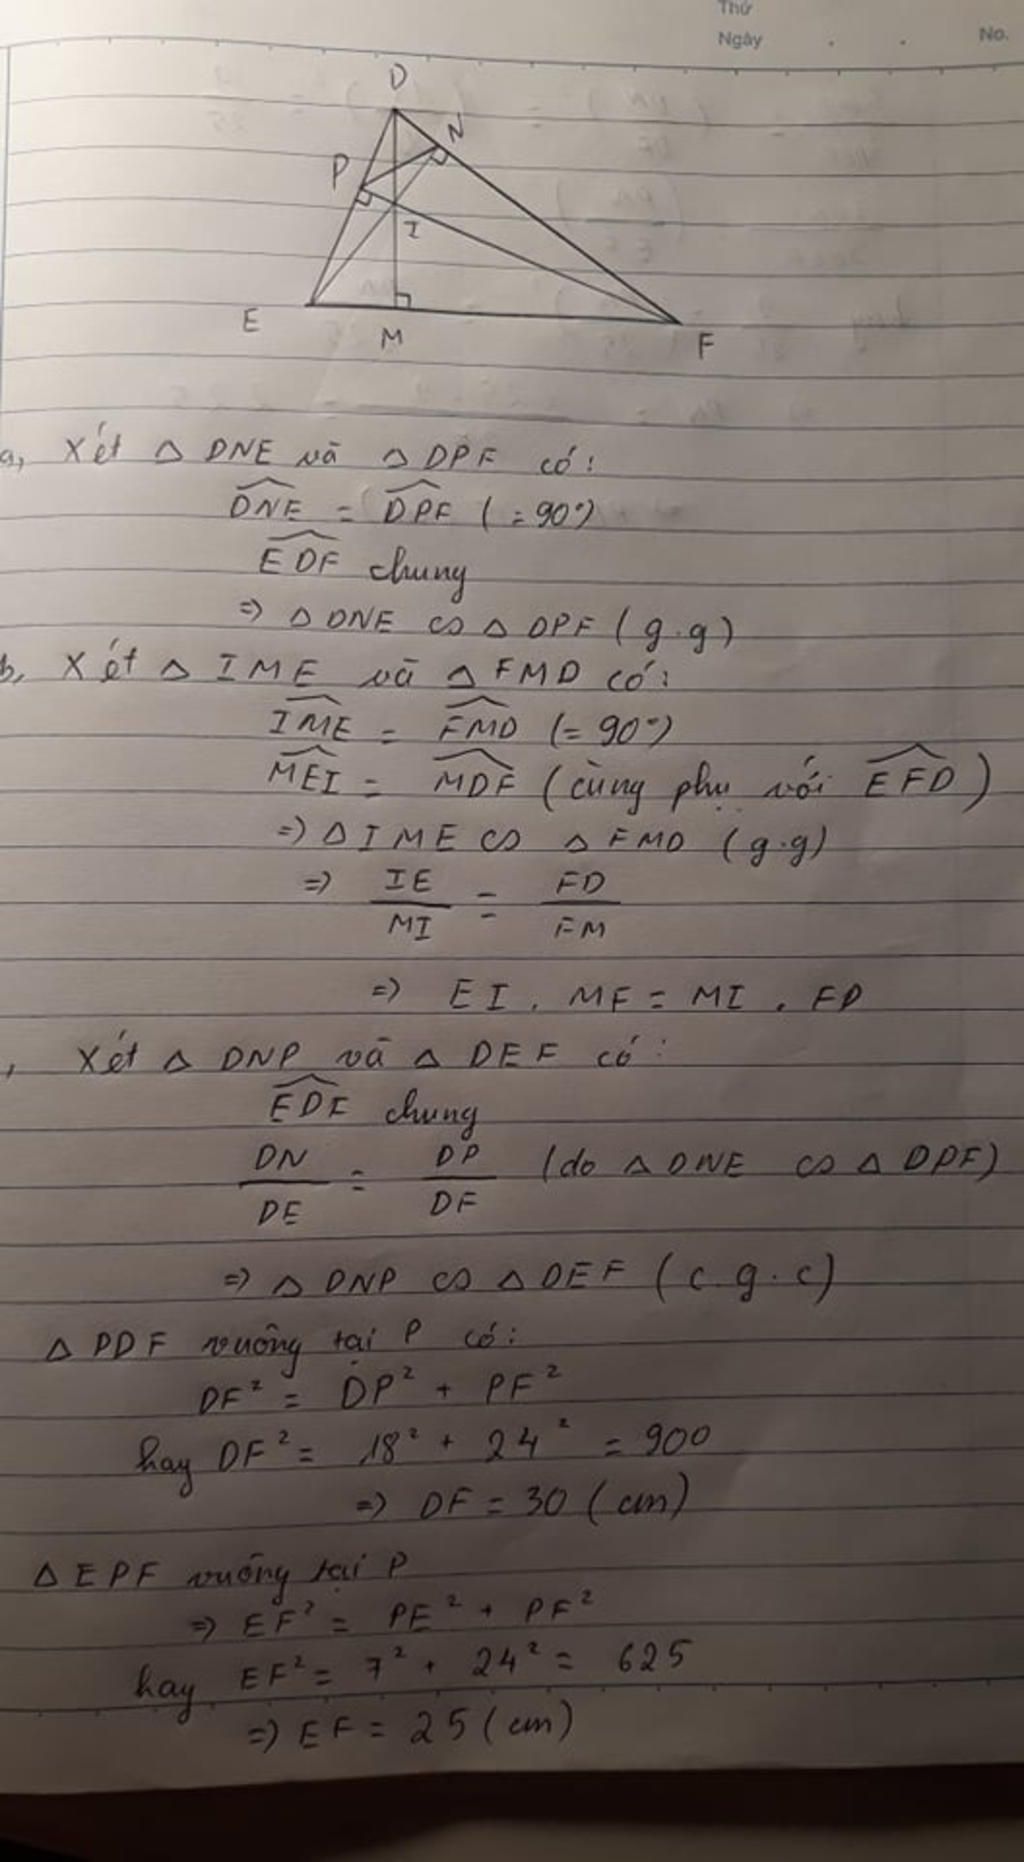 Thứ
Ngày . . No.
D
N
P
I
E
M
F
a, Xét △ DNE và △ DPF có:
$\widehat{DNE}$ = $\widehat{DPF}$ (=90°)
$\widehat{EDF}$ chung
=> △ DNE ∽ △ DPF (g.g)
b, Xét △ IME và △ FMD có:
$\widehat{IME}$ = $\widehat{FMD}$ (=90°)
$\widehat{MEI}$ = $\widehat{MDF}$ (cùng phụ với $\widehat{EFD}$)
=> △ IME ∽ △ FMD (g.g)
=> $\frac{IE}{MI}$ = $\frac{FD}{FM}$
=> EI . MF = MI . FD
, Xét △ DNP và △ DEF có:
$\widehat{EDF}$ chung
$\frac{DN}{DE}$ = $\frac{DP}{DF}$ (do △ DNE ∽ △ DPF)
=> △ DNP ∽ △ DEF (c.g.c)
△ PDF vuông tại P có:
DF² = DP² + PF²
hay DF² = 18² + 24² = 900
=> DF = 30 (cm)
△ EPF vuông tại P
=> EF² = PE² + PF²
hay EF² = 7² + 24² = 625
=> EF = 25 (cm)